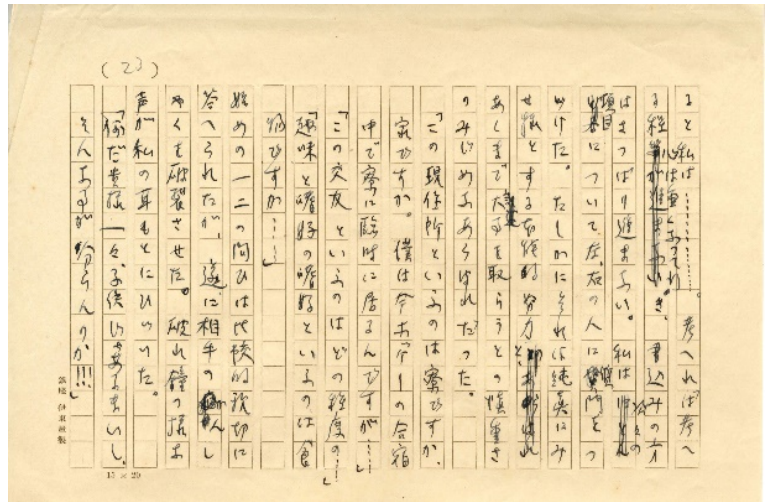 (23)
ると私は…………。考へれば考へ
る程心は重くなって行き、書込みの方
はさっぱり進まない。私は
項目について、左、右の人に質問をつ
づけた。たしかにそれは純真にみ
せ様とする本能的努力と、
あくまで大事を取らうとの慎重さ
のみじめなあらはれだった。
「この現住所といふのは寮ですか、
家ですか。僕は今ボートの合宿
中で寮に臨時に居るんですが……」
「この交友といふのはどの程度の……」
「趣味と嗜好の嗜好といふのは食
物ですか……」
始めの一二の問ひは比較的親切に
答へられたが、遂に相手の
やくを破裂させた。破れ鐘の様な
声が私の耳もとにひゞいた。
「何だ貴様一々、子供ぢゃあるまいし、
そんな事が分らんのか!!!」
15×20